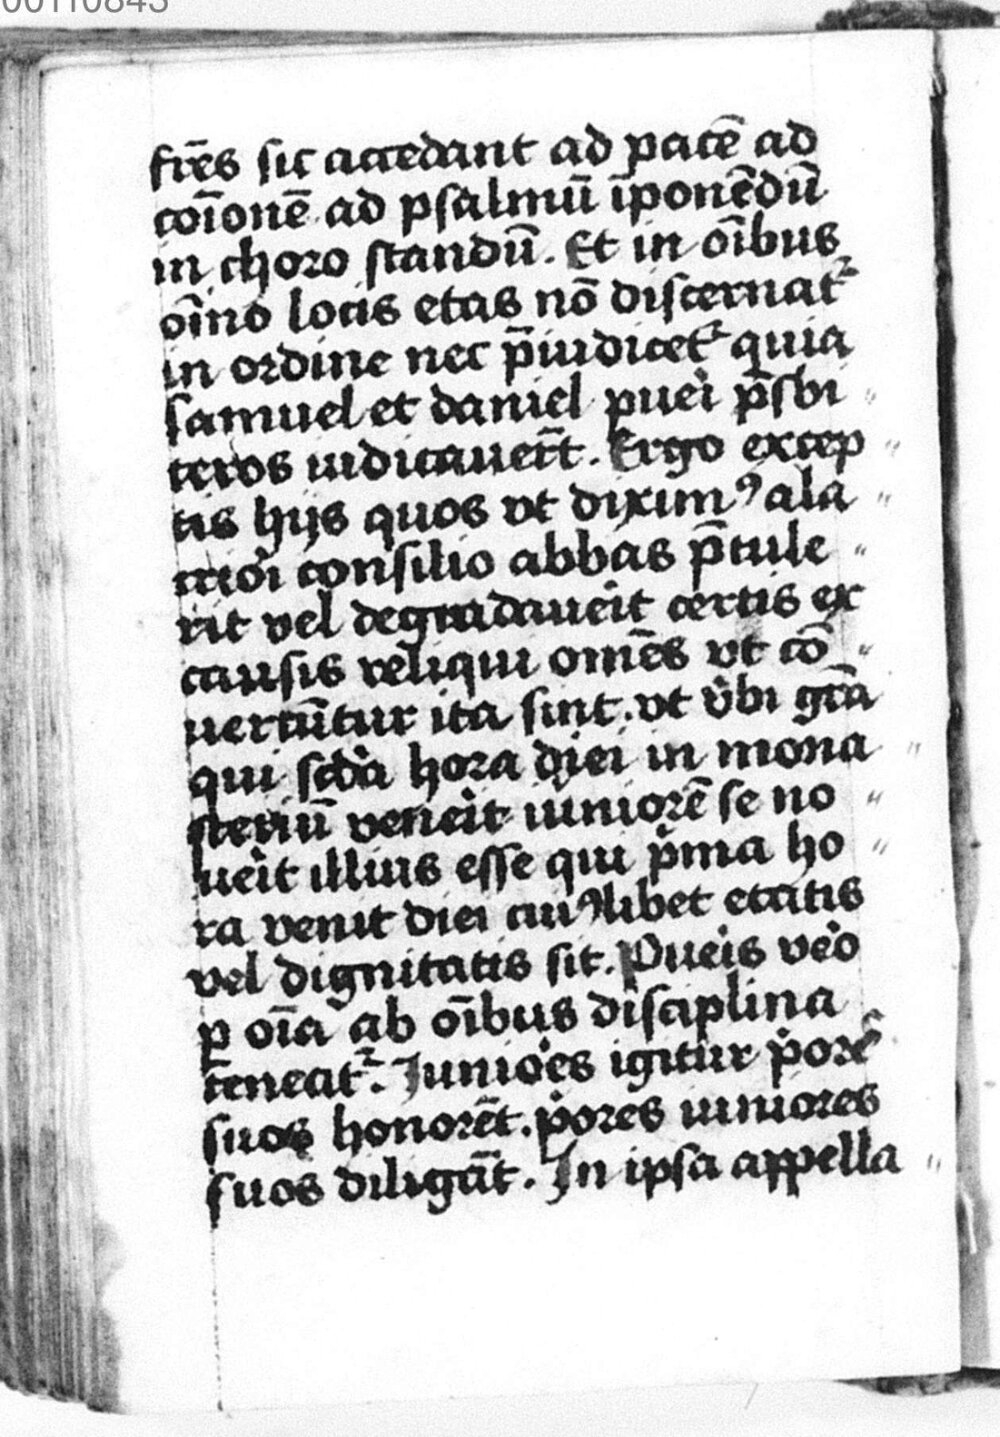 00110843
fr̄es sic accedant ad pacē ad
coi̅onē ad psalmū īponēdū
in choro standū. Et in oi̅bus
oi̅no locis etas nō discernat᷑
in ordine nec p̄iudicet᷑ quia
samuel et daniel puei̓ p̄sbi〃
teros iudicauer̄t. Ergo excep〃
tis hijs quos vt diximꝰ ala〃
crioi̓ consilio abbas p̄tule〃
rit vel degradauei̓t certis ex
causis reliqui omēs vt cō〃
uertūtur ita sint. vt v̓bi gr̄a
qui scd̓a hora diei in mona〃
steriū venei̓t iuniorē se no〃
uei̓t illius esse qui p̓ma ho〃
ra venit diei cuiꝰlibet etatis
vel dignitatis sit. Puei̓s veo̓
ꝑ oi̅a ab oi̅bus disciplina
teneat᷑. Junioe̓s igitur p̓orē
suos honorēt. p̓ores iuniores
suos diligāt. In ipsa appella〃